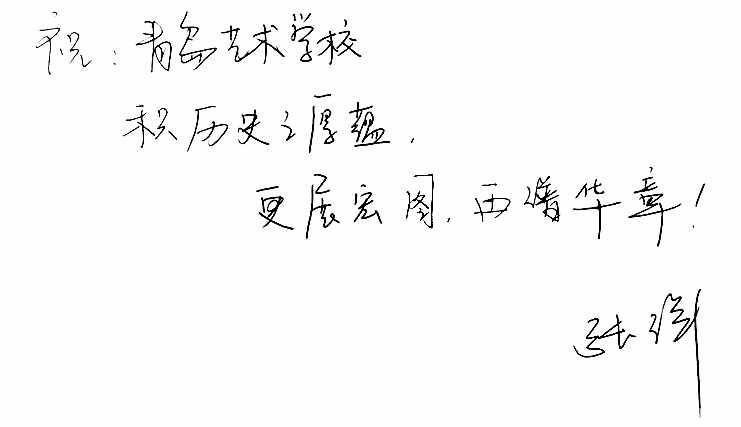 祝：青岛艺术学校
积历史之厚蕴，
更展宏图，再谱华章！
张